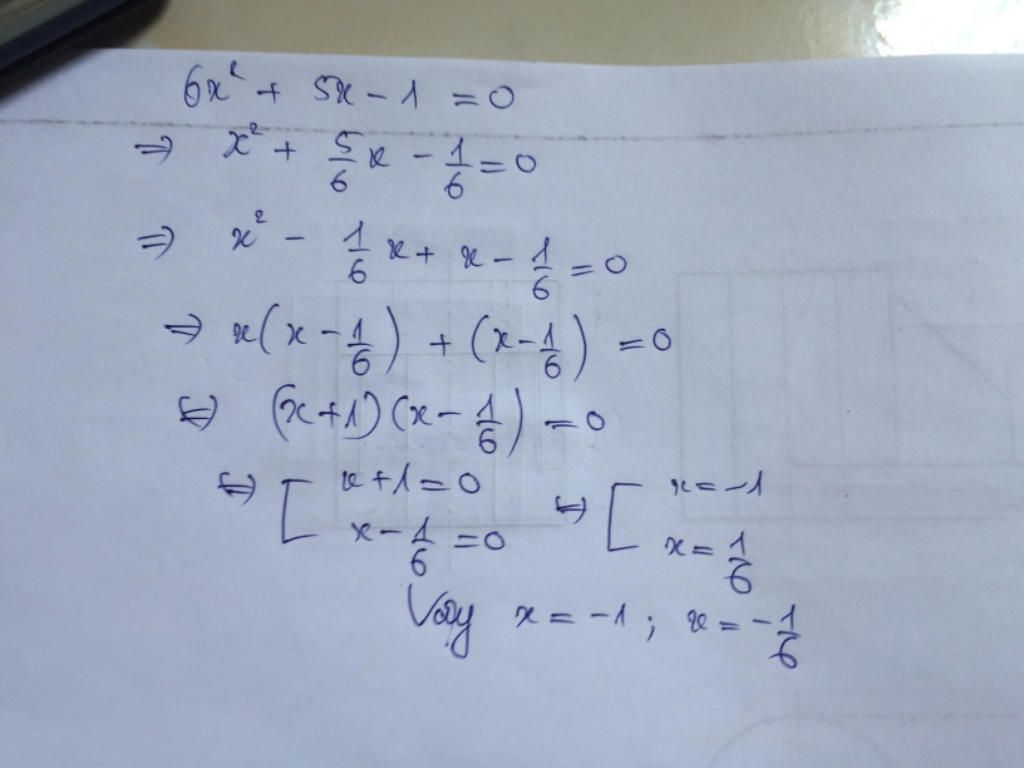 6x² + 5x - 1 = 0
⇒ x² + 5/6 x - 1/6 = 0
⇒ x² - 1/6 x + x - 1/6 = 0
⇒ x(x - 1/6) + (x - 1/6) = 0
⇔ (x+1)(x - 1/6) = 0
⇔ [ x+1=0 ⇔ [ x = -1
x - 1/6 = 0 x = 1/6
Vậy x = -1 ; x = -1/6